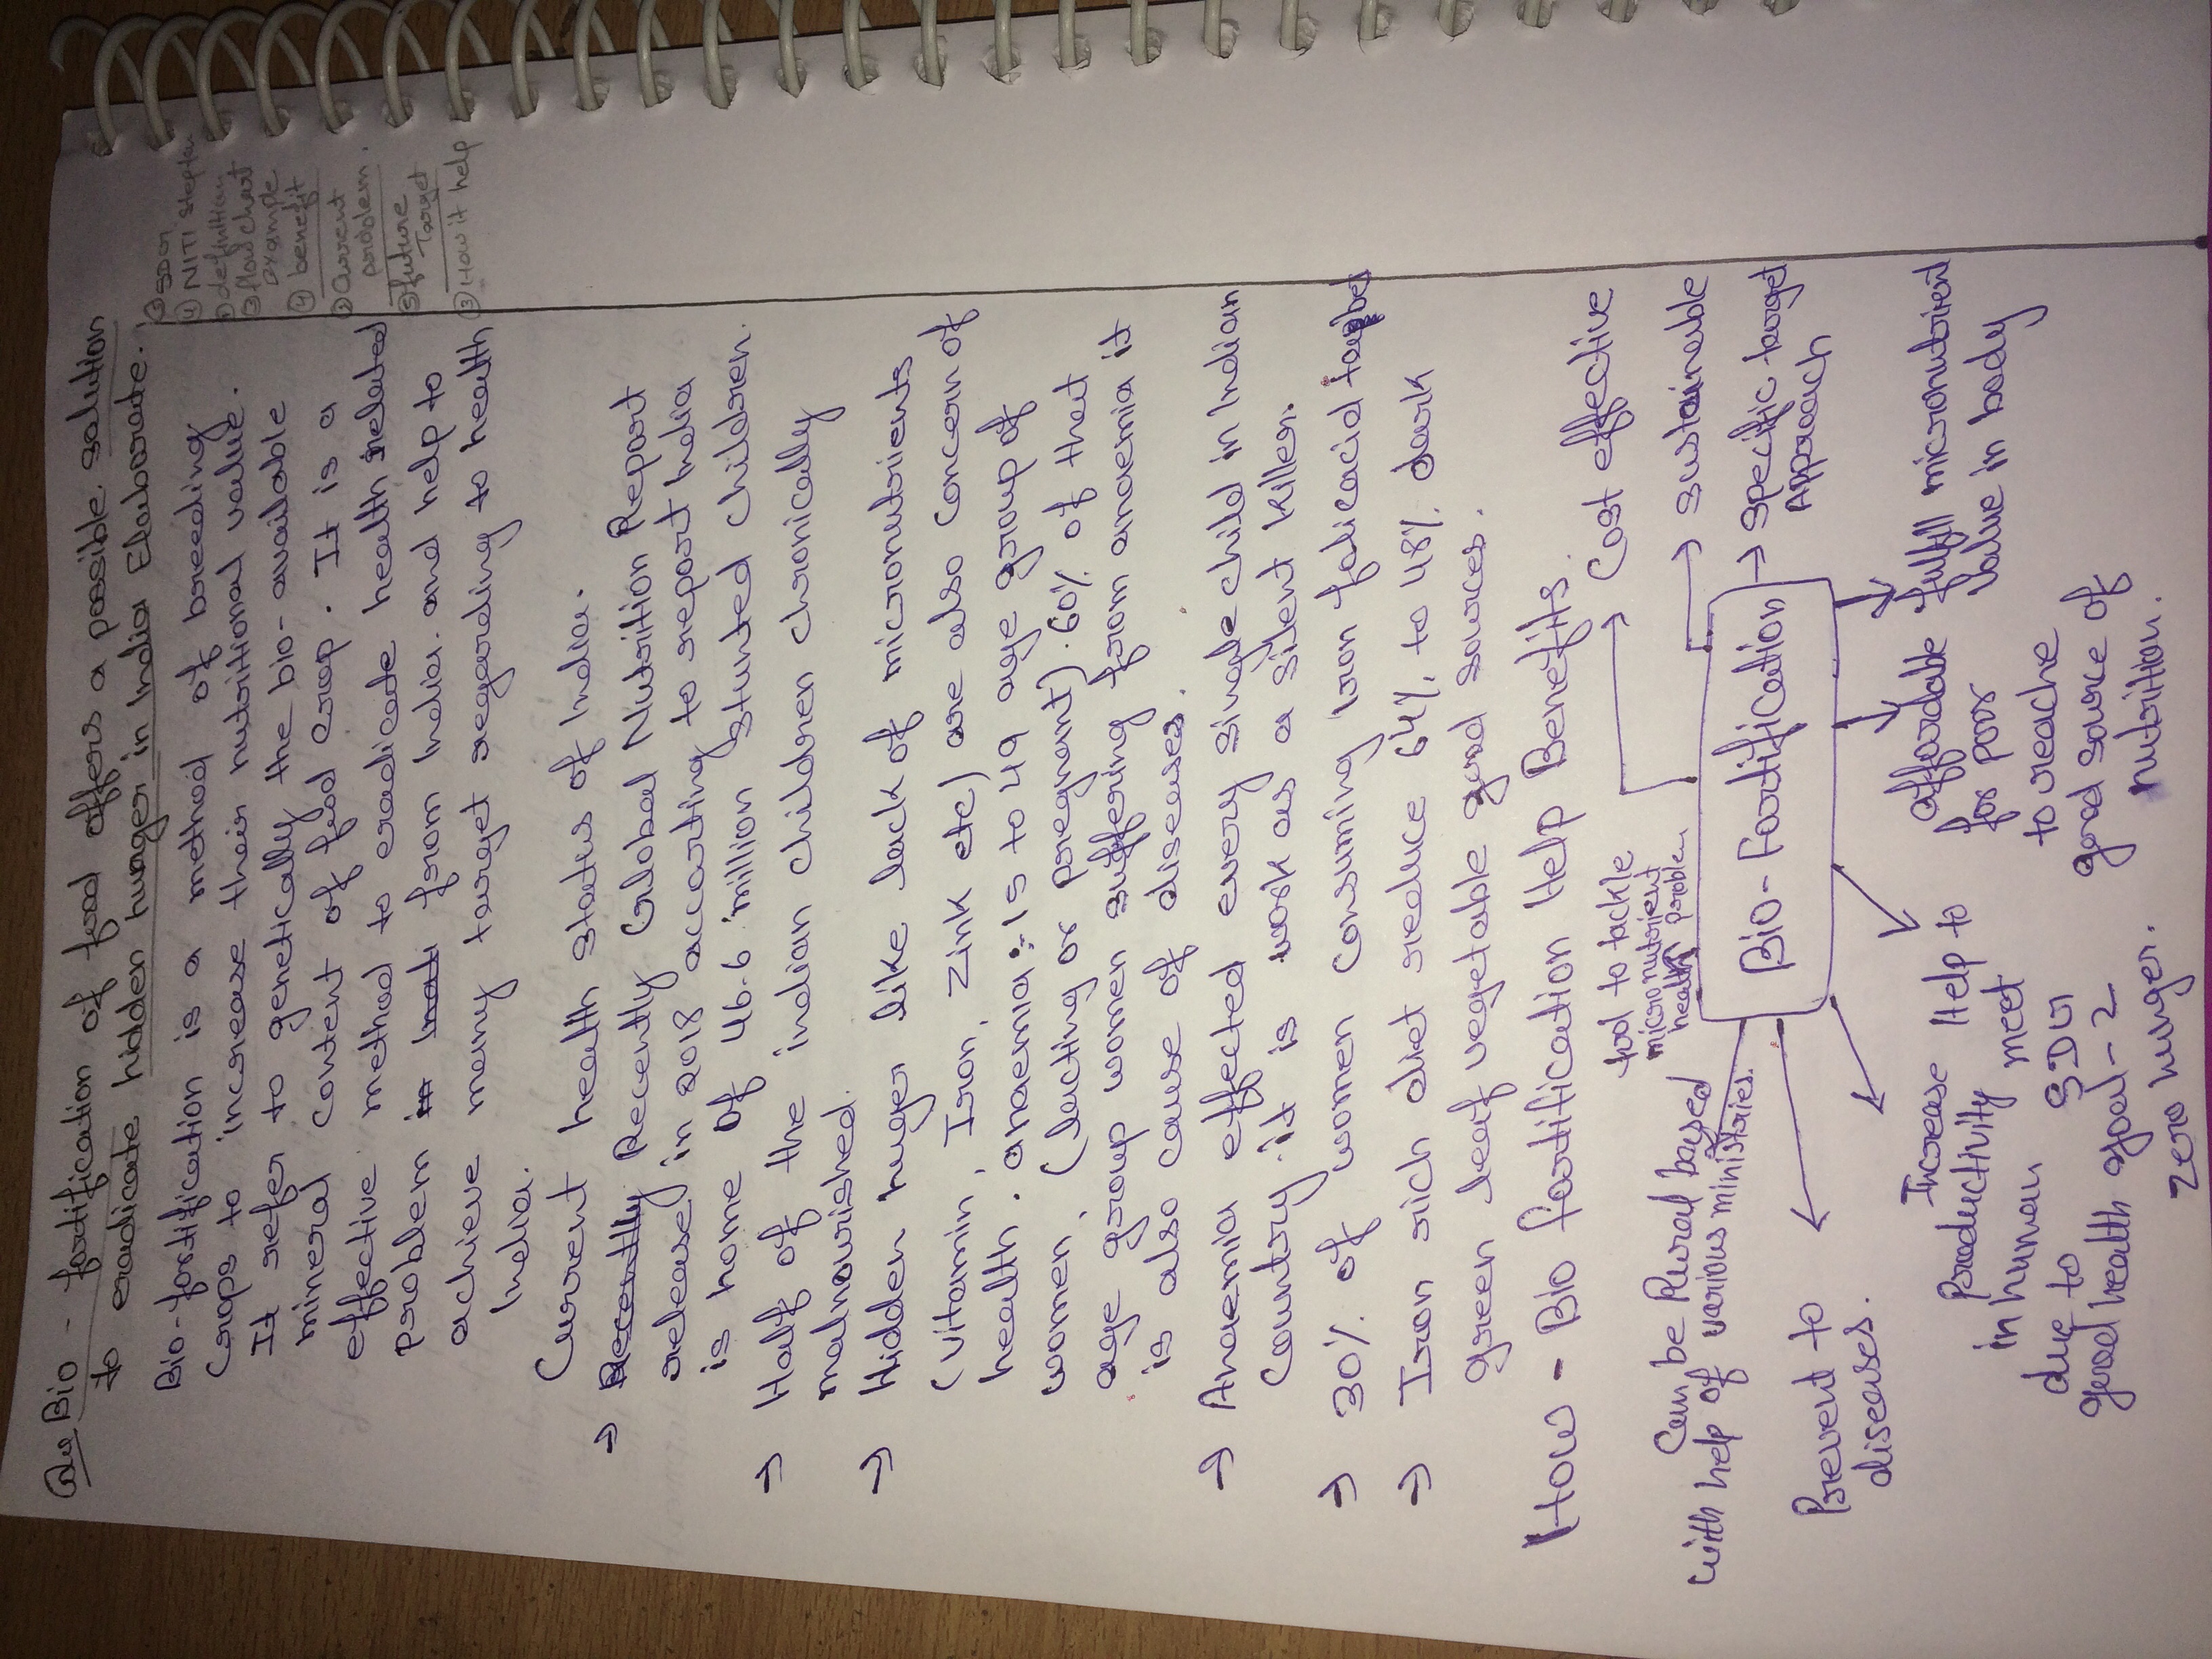 Que Bio - fortification of food offers a possible solution
to eradicate hidden hunger in India Elaborate.
Bio-fortification is a method of breeding
Crops to increase their nutritional value.
It refer to genetically the bio-available
mineral content of food crop. It is a
effective method to eradicate health related
problem from India and help to
achieve many target regarding to health
India.
① NITI
① definition
③ flow chart
example
④ benefit
② Current
problem.
⑤ future
Target
③ How it help
Current health status of India.
→ Recently Recently Global Nutrition Report
release in 2018 accorting to report India
is home of 46.6 million stunted children.
→ Half of the indian children chronically
malnourished.
→ Hidden huger like lack of micronutrients
(vitamin, Iron, Zink etc) are also concern of
health. anaemia :- 15 to 49 age group of
women, (lacting or pregnant). 60% of that
age group women suffering from anaemia it
is also cause of diseases.
→ Anaemia effected every single child in Indian
Country. it is work as a silent killer.
→ 30% of women consuming iron folicacid
→ Iron rich diet reduce 64% to 48% dark
green leaf vegetable good sources.
How - Bio fortification Help Benefits.
Cost effective
tool to tackle
micronutrient
health problem
→ Sustainable
Can be Rural based
with help of various ministries.
Bio-Fortification
→ Specific target
Approach
Prevent to
diseases.
Increase
Productivity
in human
due to
good health
Help to
meet
SDG
goal-2
Zero hunger.
affordable
for poor
to reache
good source of
nutrition.
fulfill micronutrient
value in body